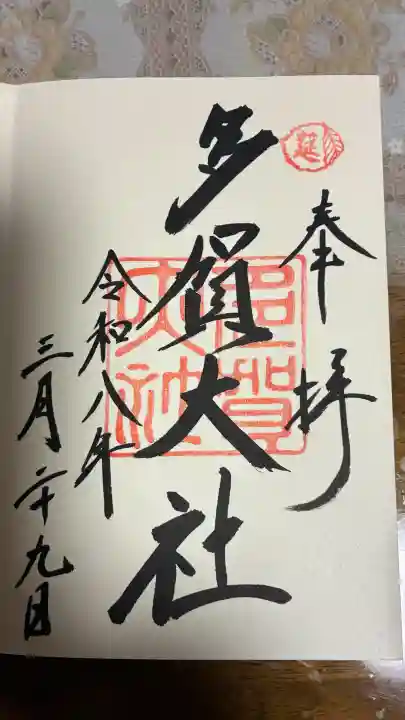 延
奉拝
多賀大社
多賀大社
令和八年
三月二十九日